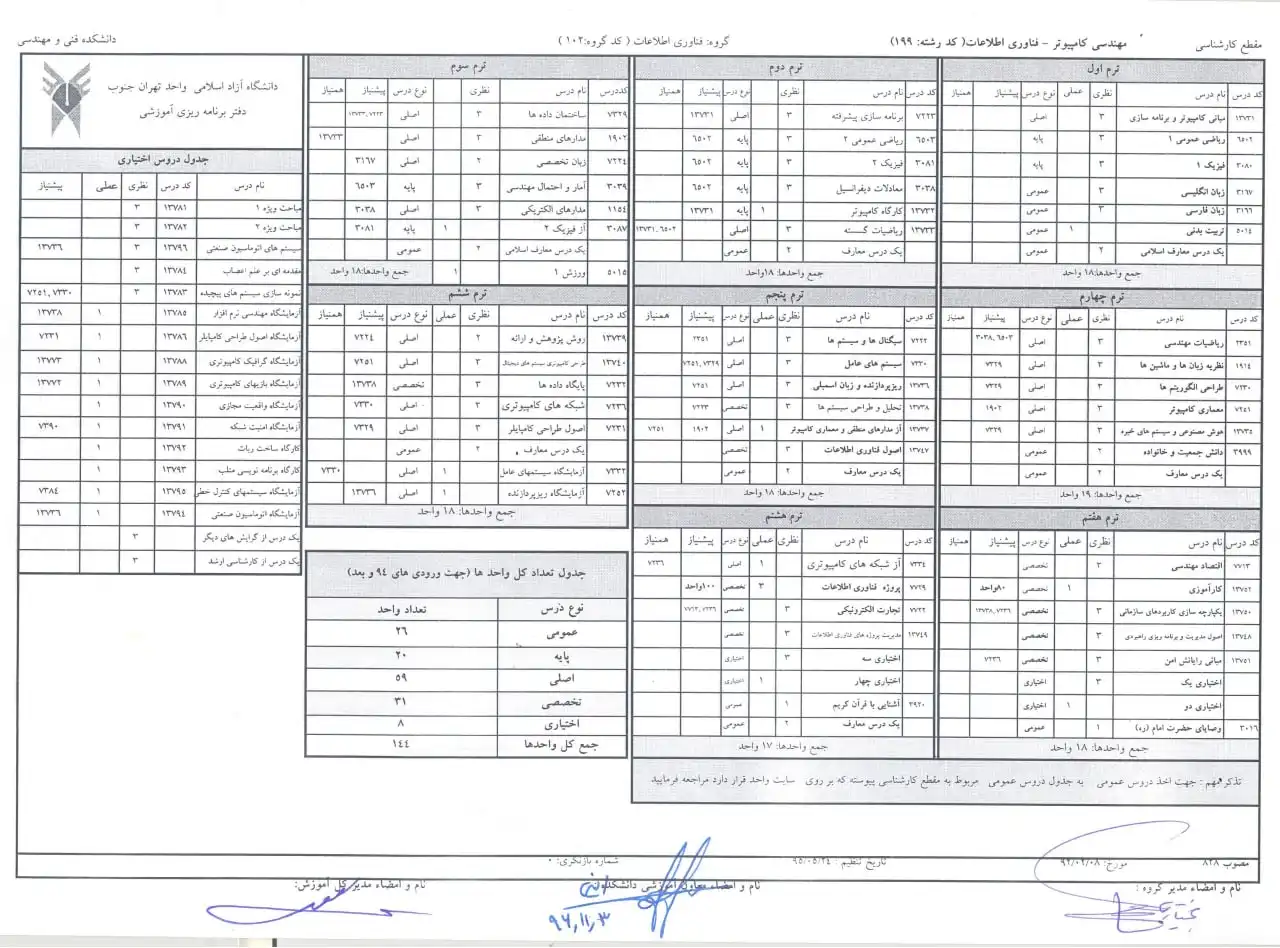 مقطع کارشناسی
مهندسی کامپیوتر – فناوری اطلاعات( کد رشته: ۱۹۹)
گروه: فناوری اطلاعات ( کد گروه:۱۰۲ )
دانشکده فنی و مهندسی
ترم اول
کد درس نام درس نظری عملی نوع درس پیشنیاز همنیاز
۱۳۷۳۱ مبانی کامپیوتر و برنامه سازی ۳ اصلی
۶۵۰۲ ریاضی عمومی ۱ ۳ پایه
۳۰۸۰ فیزیک ۱ ۳ پایه
۳۱۶۷ زبان انگلیسی ۳ عمومی
۳۱۶۶ زبان فارسی ۳ عمومی
۵۰۱۴ تربیت بدنی ۱ عمومی
یک درس معارف اسلامی ۲ عمومی
جمع واحدها:۱۸ واحد
ترم دوم
کد درس نام درس نظری نوع درس پیشنیاز همنیاز
۷۲۲۳ برنامه سازی پیشرفته ۳ اصلی ۱۳۷۳۱
۶۵۰۳ ریاضی عمومی ۲ ۳ پایه ۶۵۰۲
۳۰۸۱ فیزیک ۲ ۳ پایه ۶۵۰۲
۳۰۳۸ معادلات دیفرانسیل ۳ پایه ۶۵۰۲
۱۳۷۳۲ کارگاه کامپیوتر ۱ پایه ۱۳۷۳۱
۱۳۷۳۳ ریاضیات گسسته ۳ اصلی ۱۳۷۳۱،۶۵۰۲
یک درس معارف ۲ عمومی
جمع واحدها: ۱۸واحد
ترم سوم
کددرس نام درس نظری نوع درس پیشنیاز همنیاز
۷۳۲۹ ساختمان داده ها ۳ اصلی ۱۳۷۳۳،۷۲۲۳
۱۹۰۲ مدارهای منطقی ۳ اصلی ۱۳۷۳۳
۷۲۲۴ زبان تخصصی ۲ اصلی ۳۱۶۷
۳۰۳۹ آمار و احتمال مهندسی ۳ پایه ۶۵۰۳
۱۱۵۴ مدارهای الکتریکی ۳ اصلی ۳۰۳۸
۳۰۸۷ آز فیزیک ۲ ۱ پایه ۳۰۸۱
یک درس معارف اسلامی ۲ عمومی
۵۰۱۵ ورزش ۱ ۱ جمع واحدها:۱۸ واحد
دانشگاه آزاد اسلامی واحد تهران جنوب
دفتر برنامه ریزی آموزشی
جدول دروس اختیاری
نام درس کد درس نظری عملی پیشنیاز
مباحث ویژه ۱ ۱۳۷۸۱ ۳
مباحث ویژه ۲ ۱۳۷۸۲ ۳
سیستم های اتوماسیون صنعتی ۱۳۷۹۶ ۳ ۱۳۷۳۶
مقدمه ای بر علم اعصاب ۱۳۷۸۴ ۳
نمونه سازی سیستم های پیچیده ۱۳۷۸۳ ۳ ۷۲۵۱،۷۳۳۰
آزمایشگاه مهندسی نرم افزار ۱۳۷۸۵ ۱ ۱۳۷۳۸
آزمایشگاه اصول طراحی کامپایلر ۱۳۷۸۶ ۱ ۷۲۳۱
آزمایشگاه گرافیک کامپیوتری ۱۳۷۸۸ ۱ ۱۳۷۷۳
آزمایشگاه بازیهای کامپیوتری ۱۳۷۸۹ ۱ ۱۳۷۷۲
آزمایشگاه واقعیت مجازی ۱۳۷۹۰ ۱
آزمایشگاه امنیت شبکه ۱۳۷۹۱ ۱ ۷۳۹۰
کارگاه ساخت ربات ۱۳۷۹۲ ۱
کارگاه برنامه نویسی متلب ۱۳۷۹۳ ۱
آزمایشگاه سیستمهای کنترل خطی ۱۳۷۹۵ ۱ ۷۳۸۴
آزمایشگاه اتوماسیون صنعتی ۱۳۷۹۴ ۱ ۱۳۷۳۶
یک درس از گرایش های دیگر ۳
یک درس از کارشناسی ارشد ۳
ترم چهارم
کد درس نام درس نظری عملی نوع درس پیشنیاز همنیاز
۲۳۵۱ ریاضیات مهندسی ۳ اصلی ۳۰۳۸،۶۵۰۳
۱۹۱۴ نظریه زبان ها و ماشین ها ۳ اصلی ۷۳۲۹
۷۲۳۰ طراحی الگوریتم ها ۳ اصلی ۷۳۲۹
۷۲۵۱ معماری کامپیوتر ۳ اصلی ۱۹۰۲
۱۳۷۳۵ هوش مصنوعی و سیستم های خبره ۳ اصلی ۷۳۲۹
۳۹۹۹ دانش جمعیت و خانواده ۲ عمومی
یک درس معارف ۲ عمومی
جمع واحدها: ۱۹ واحد
ترم پنجم
کد درس نام درس نظری عملی نوع درس پیشنیاز همنیاز
۷۲۲۲ سیگنال ها و سیستم ها ۳ اصلی ۲۳۵۱
۷۳۳۰ سیستم های عامل ۳ اصلی ۷۲۵۱،۷۳۲۹
۱۳۷۳۶ ریزپردازنده و زبان اسمبلی ۳ اصلی ۷۲۵۱
۱۳۷۳۸ تحلیل و طراحی سیستم ها ۳ تخصصی ۷۲۲۳
۱۳۷۳۷ آز مدارهای منطقی و معماری کامپیوتر ۱ اصلی ۱۹۰۲ ۷۲۵۱
۱۳۷۴۷ اصول فناوری اطلاعات ۳ تخصصی
یک درس معارف ۲ عمومی
جمع واحدها: ۱۸ واحد
ترم ششم
کد درس نام درس نظری عملی نوع درس پیشنیاز همنیاز
۱۳۷۳۹ روش پژوهش و ارائه ۲ اصلی ۷۲۲۴
۱۳۷۴۰ طراحی کامپیوتری سیستم های دیجیتال ۳ اصلی ۷۲۵۱
۷۲۳۲ پایگاه داده ها ۳ تخصصی ۱۳۷۳۸
۷۲۳۶ شبکه های کامپیوتری ۳ اصلی ۷۳۳۰
۷۲۳۱ اصول طراحی کامپایلر ۳ اصلی ۷۳۲۹
یک درس معارف ۲ عمومی
۷۳۳۲ آزمایشگاه سیستمهای عامل ۱ اصلی ۷۳۳۰
۷۲۵۲ آزمایشگاه ریزپردازنده ۱ اصلی ۱۳۷۳۶
جمع واحدها: ۱۸ واحد
ترم هفتم
کد درس نام درس نظری عملی نوع درس پیشنیاز همنیاز
۷۷۱۳ اقتصاد مهندسی ۳ تخصصی
۱۳۷۵۲ کارآموزی ۱ تخصصی ۸۰واحد
۱۳۷۵۰ یکپارچه سازی کاربردهای سازمانی ۳ تخصصی ۱۳۷۳۸،۷۲۳۶
۱۳۷۴۸ اصول مدیریت و برنامه ریزی راهبردی ۳ تخصصی
۱۳۷۵۱ مبانی رایانش امن ۳ تخصصی ۷۲۳۶
اختیاری یک ۳ اختیاری
اختیاری دو ۱ اختیاری
۳۰۱۶ وصایای حضرت امام (ره) ۱ عمومی
جمع واحدها: ۱۸ واحد
ترم هشتم
کد درس نام درس نظری عملی نوع درس پیشنیاز همنیاز
۷۳۳۴ آز شبکه های کامپیوتری ۱ اصلی ۷۲۳۶
۷۷۲۹ پروژه فناوری اطلاعات ۳ تخصصی ۱۰۰واحد
۷۷۲۲ تجارت الکترونیکی ۳ تخصصی ۷۷۱۳،۷۲۳۶
۱۳۷۴۹ مدیریت پروژه های فناوری اطلاعات ۳ تخصصی
اختیاری سه ۳ اختیاری
اختیاری چهار ۱ اختیاری
۳۹۲۰ آشنایی با قرآن کریم ۱ عمومی
یک درس معارف ۲ عمومی
جمع واحدها: ۱۷ واحد
جدول تعداد کل واحد ها (جهت ورودی های ۹۴ و بعد)
نوع درس تعداد واحد
عمومی ۲۶
پایه ۲۰
اصلی ۵۹
تخصصی ۳۱
اختیاری ۸
جمع کل واحدها ۱۴۴
تذکر مهم : جهت اخذ دروس عمومی به جدول دروس عمومی مربوط به مقطع کارشناسی پیوسته که بر روی سایت واحد قرار دارد مراجعه فرمایید
مصوب ۸۲۸ مورخ: ۹۲/۰۲/۰۸ تاریخ تنظیم : ۹۵/۰۵/۲۴ شماره بازنگری: ۰
نام و امضاء مدیر گروه :
نام و امضاء معاون آموزشی دانشکده:
نام و امضاء مدیر کل آموزش:
۹۶،۱۱،۳